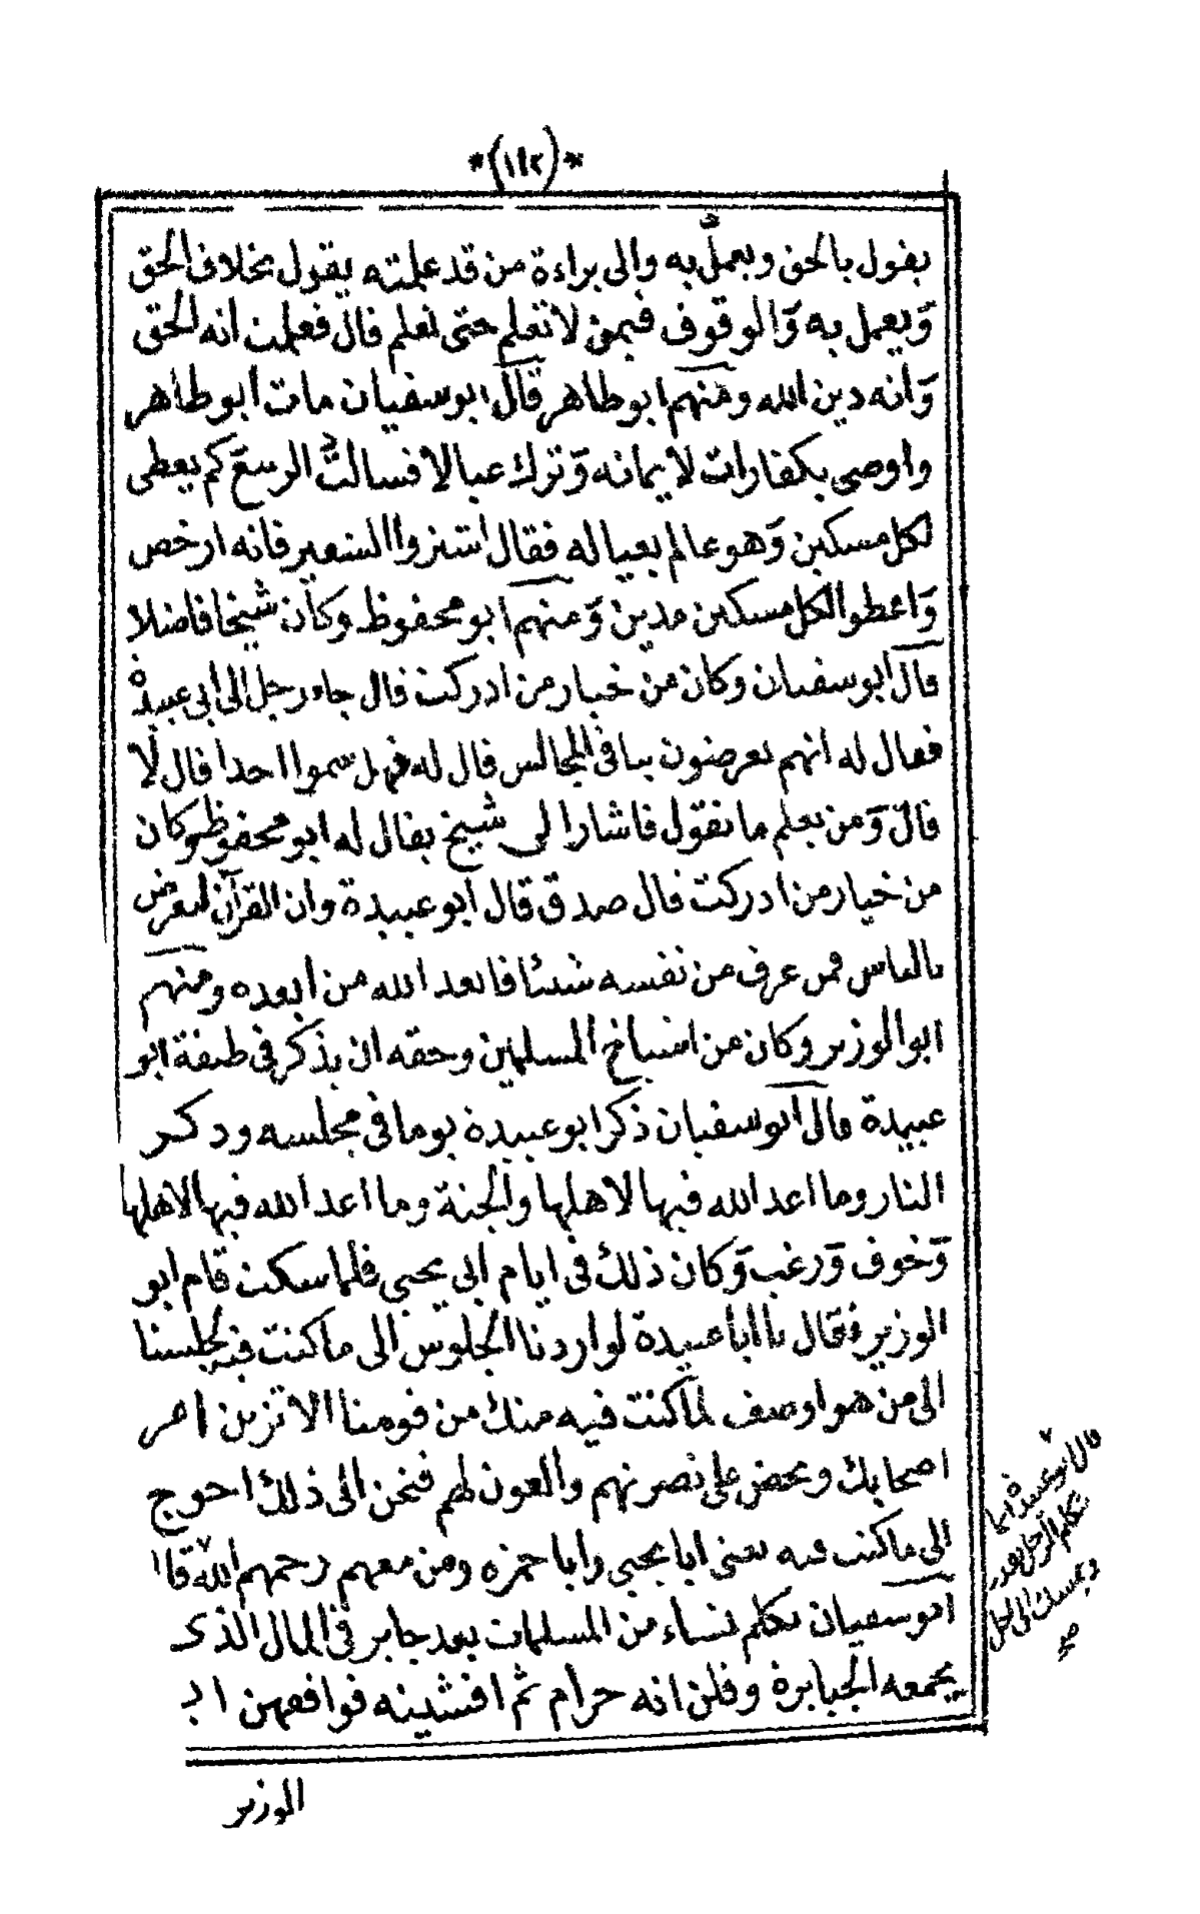 *(١١٢)*
يقول بالحق ويعمل به والى براءة من قد علمته يقول بخلاف الحق
ويعمل به والوقوف فيمن لا تعلم حتى تعلم قال فعلمت انه الحق
وانه دين الله ومنهم ابو طاهر قال ابو سفيان مات ابو طاهر
واوصى بكفارات لايمانه وترك عيالا فسالت الربيع كم يعطى
لكل مسكين وهو عالم بعياله فقال اشتروا الشعير فانه ارخص
واعطوا لكل مسكين مدين ومنهم ابو محفوظ وكان شيخا فاضلا
قال ابو سفيان وكان من خيار من ادركت قال جاء رجل الى ابى عبيدة
فقال له انهم يعرضون بنا فى المجالس قال له فهل سموا احدا قال لا
قال ومن يعلم ما نقول فاشار الى شيخ يقال له ابو محفوظ وكان
من خيار من ادركت قال صدق قال ابو عبيدة وان القرآن ليعرض
بالناس فمن عرف من نفسه شيئا فابعد الله من ابعده ومنهم
ابو الوزير وكان من اشياخ المسلمين وحقه ان يذكر فى طبقة ابو
عبيدة قال ابو سفيان ذكر ابو عبيدة يوما فى مجلسه وذكر
النار وما اعد الله فيها لاهلها والجنة وما اعد الله فيها لاهلها
وخوف ورغب وكان ذلك فى ايام ابى يحيى فلما سكت قام ابو
الوزير فقال يا ابا عبيدة لو اردنا الجلوس الى ما كنت فيه لجلسنا
الى من هو اوصف لما كنت فيه منك من قومنا الا تزين امر
اصحابك وتحض على نصرتهم والعون لهم فنحن الى ذلك احوج
الى ما كنت فيه يعنى ابا يحيى وابا حمزه ومن معهم رحمهم الله قال
ابو سفيان تكلم نساء من المسلمات بعد جابر فى المال الذى
يجمعه الجبابرة وقلن انه حرام ثم افشينه فوافعهن ابو
الوزير
قال ابو عبيدة انما
تكلم الرجل بقدر